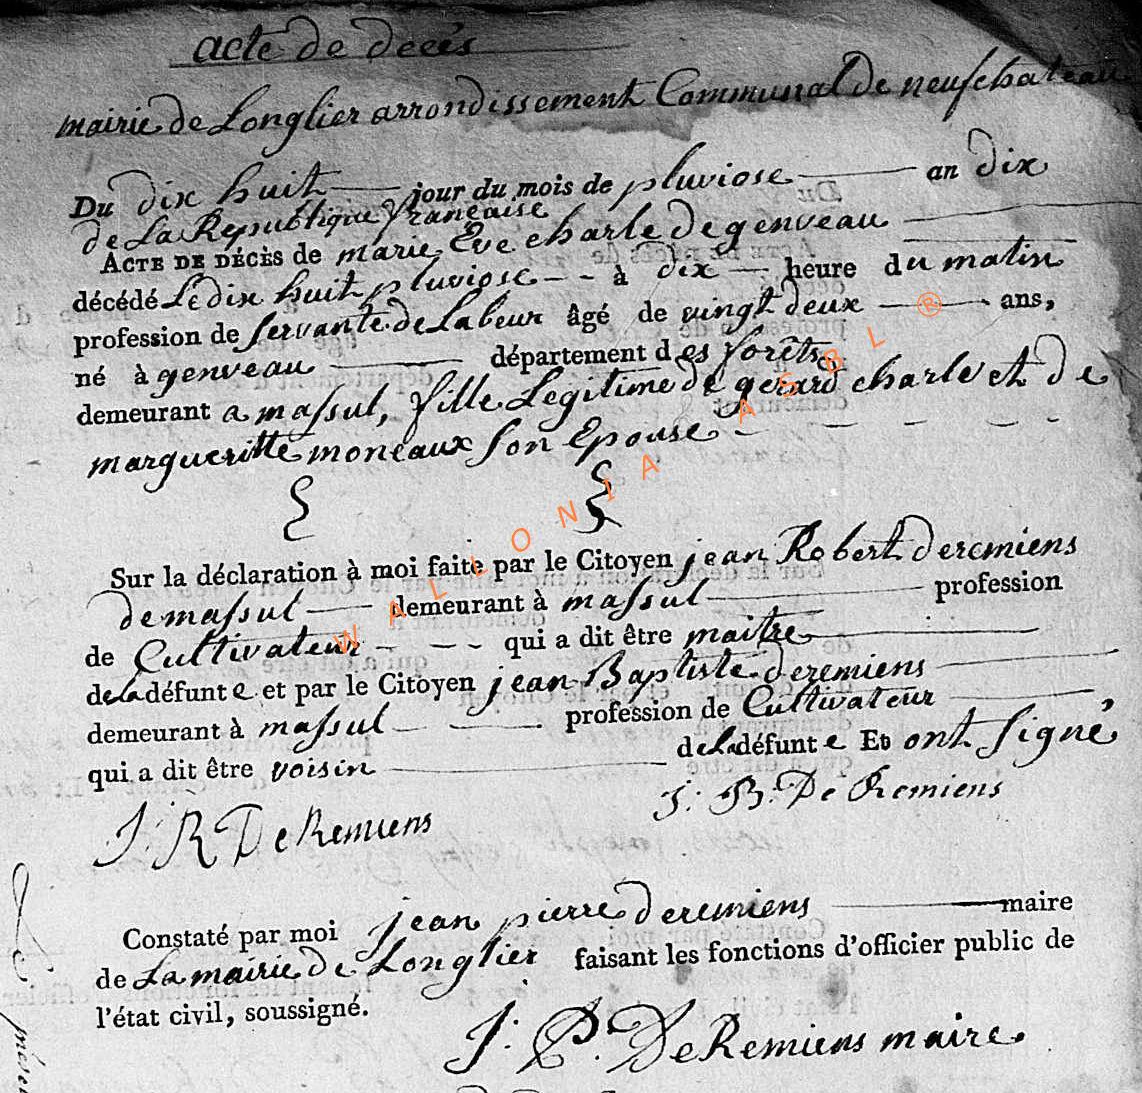 acte de decés
mairie de Longlier arrondissement Communal de neufchateau
Du dix huit jour du mois de pluviose an dix
de La Republique française
ACTE DE DÉCÈS de marie Eve charle de genveau
décédé Le dix huit pluviose - - à dix heure du matin
profession de servante de Labeur âgé de vingt deux ans,
né à genveau département des forêts
demeurant a massul, fille Legitime de gerard charle et de
margueritte moneaux son Epouse
Sur la déclaration à moi faite par le Citoyen jean Robert deremiens
de massul demeurant à massul profession
de Cultivateur - - - qui a dit être maitre
de la défunte et par le Citoyen jean Baptiste deremiens
demeurant à massul profession de Cultivateur
qui a dit être voisin de la défunte Et ont signé
J: R DeRemiens J: B: De Remiens
Constaté par moi jean pierre deremiens maire
de La mairie de Longlier faisant les fonctions d'officier public de
l'état civil, soussigné.
J: P: DeRemiens maire
WALLONIA ASBL ®